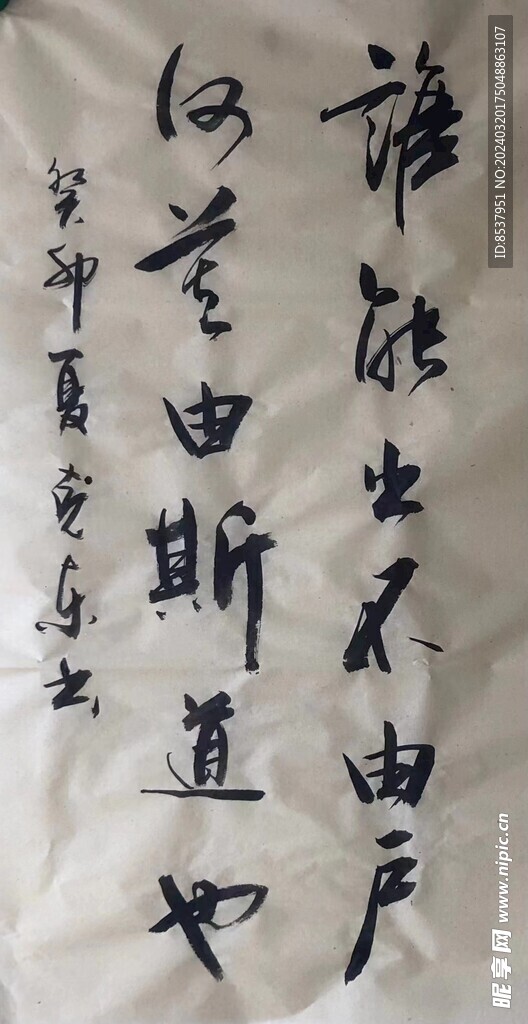 誰能出不由户
何莫由斯道也
癸卯夏克东书
ID:8537951 NO:20240320175048863107
昵享网 www.nipic.cn